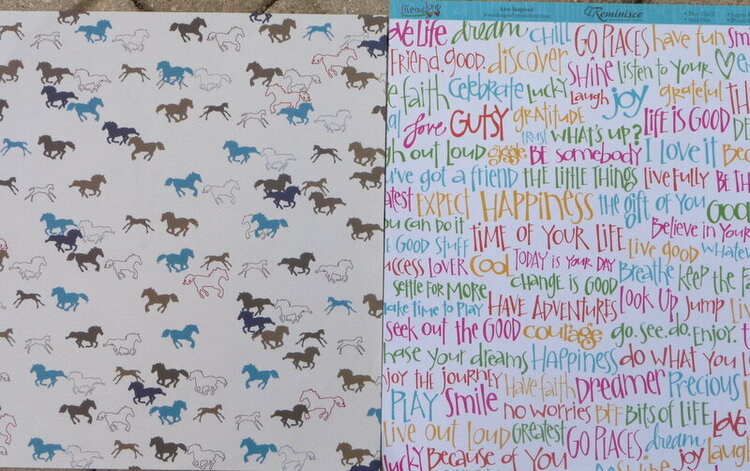 Live Inspired Reminisce
Love Life dream CHILL GO PLACES have fun
Friend GOOD. discover SHINE Listen to YOUR
faith Celebrate LUCKY Laugh JOY grateful
love GUTSY gratitude trust WHAT'S UP? LIFE IS GOOD
out LOUD giggle BE SOMEBODY I love it
've got a friend THE LITTLE THINGS LIVE FULLY BE
EXPECT HAPPINESS the GIFT OF YOU
can do it TIME OF YOUR LIFE Believe in YOUR
GOOD STUFF LIVE good
LOVER COOL TODAY IS YOUR DAY Breathe KEEP THE
SETTLE FOR MORE CHANGE is GOOD
time to PLAY HAVE ADVENTURES LOOK UP JUMP
SEEK OUT THE GOOD courage go. see. do. ENJOY.
YOUR dreams HAPPINESS DO WHAT YOU
THE JOURNEY Have faith DREAMER PRECIOUS
PLAY Smile no worries BFF BITS OF LIFE Love
OUT LOUD GREATEST GO PLACES dream
LUCKY BECAUSE OF YOU joy laugh